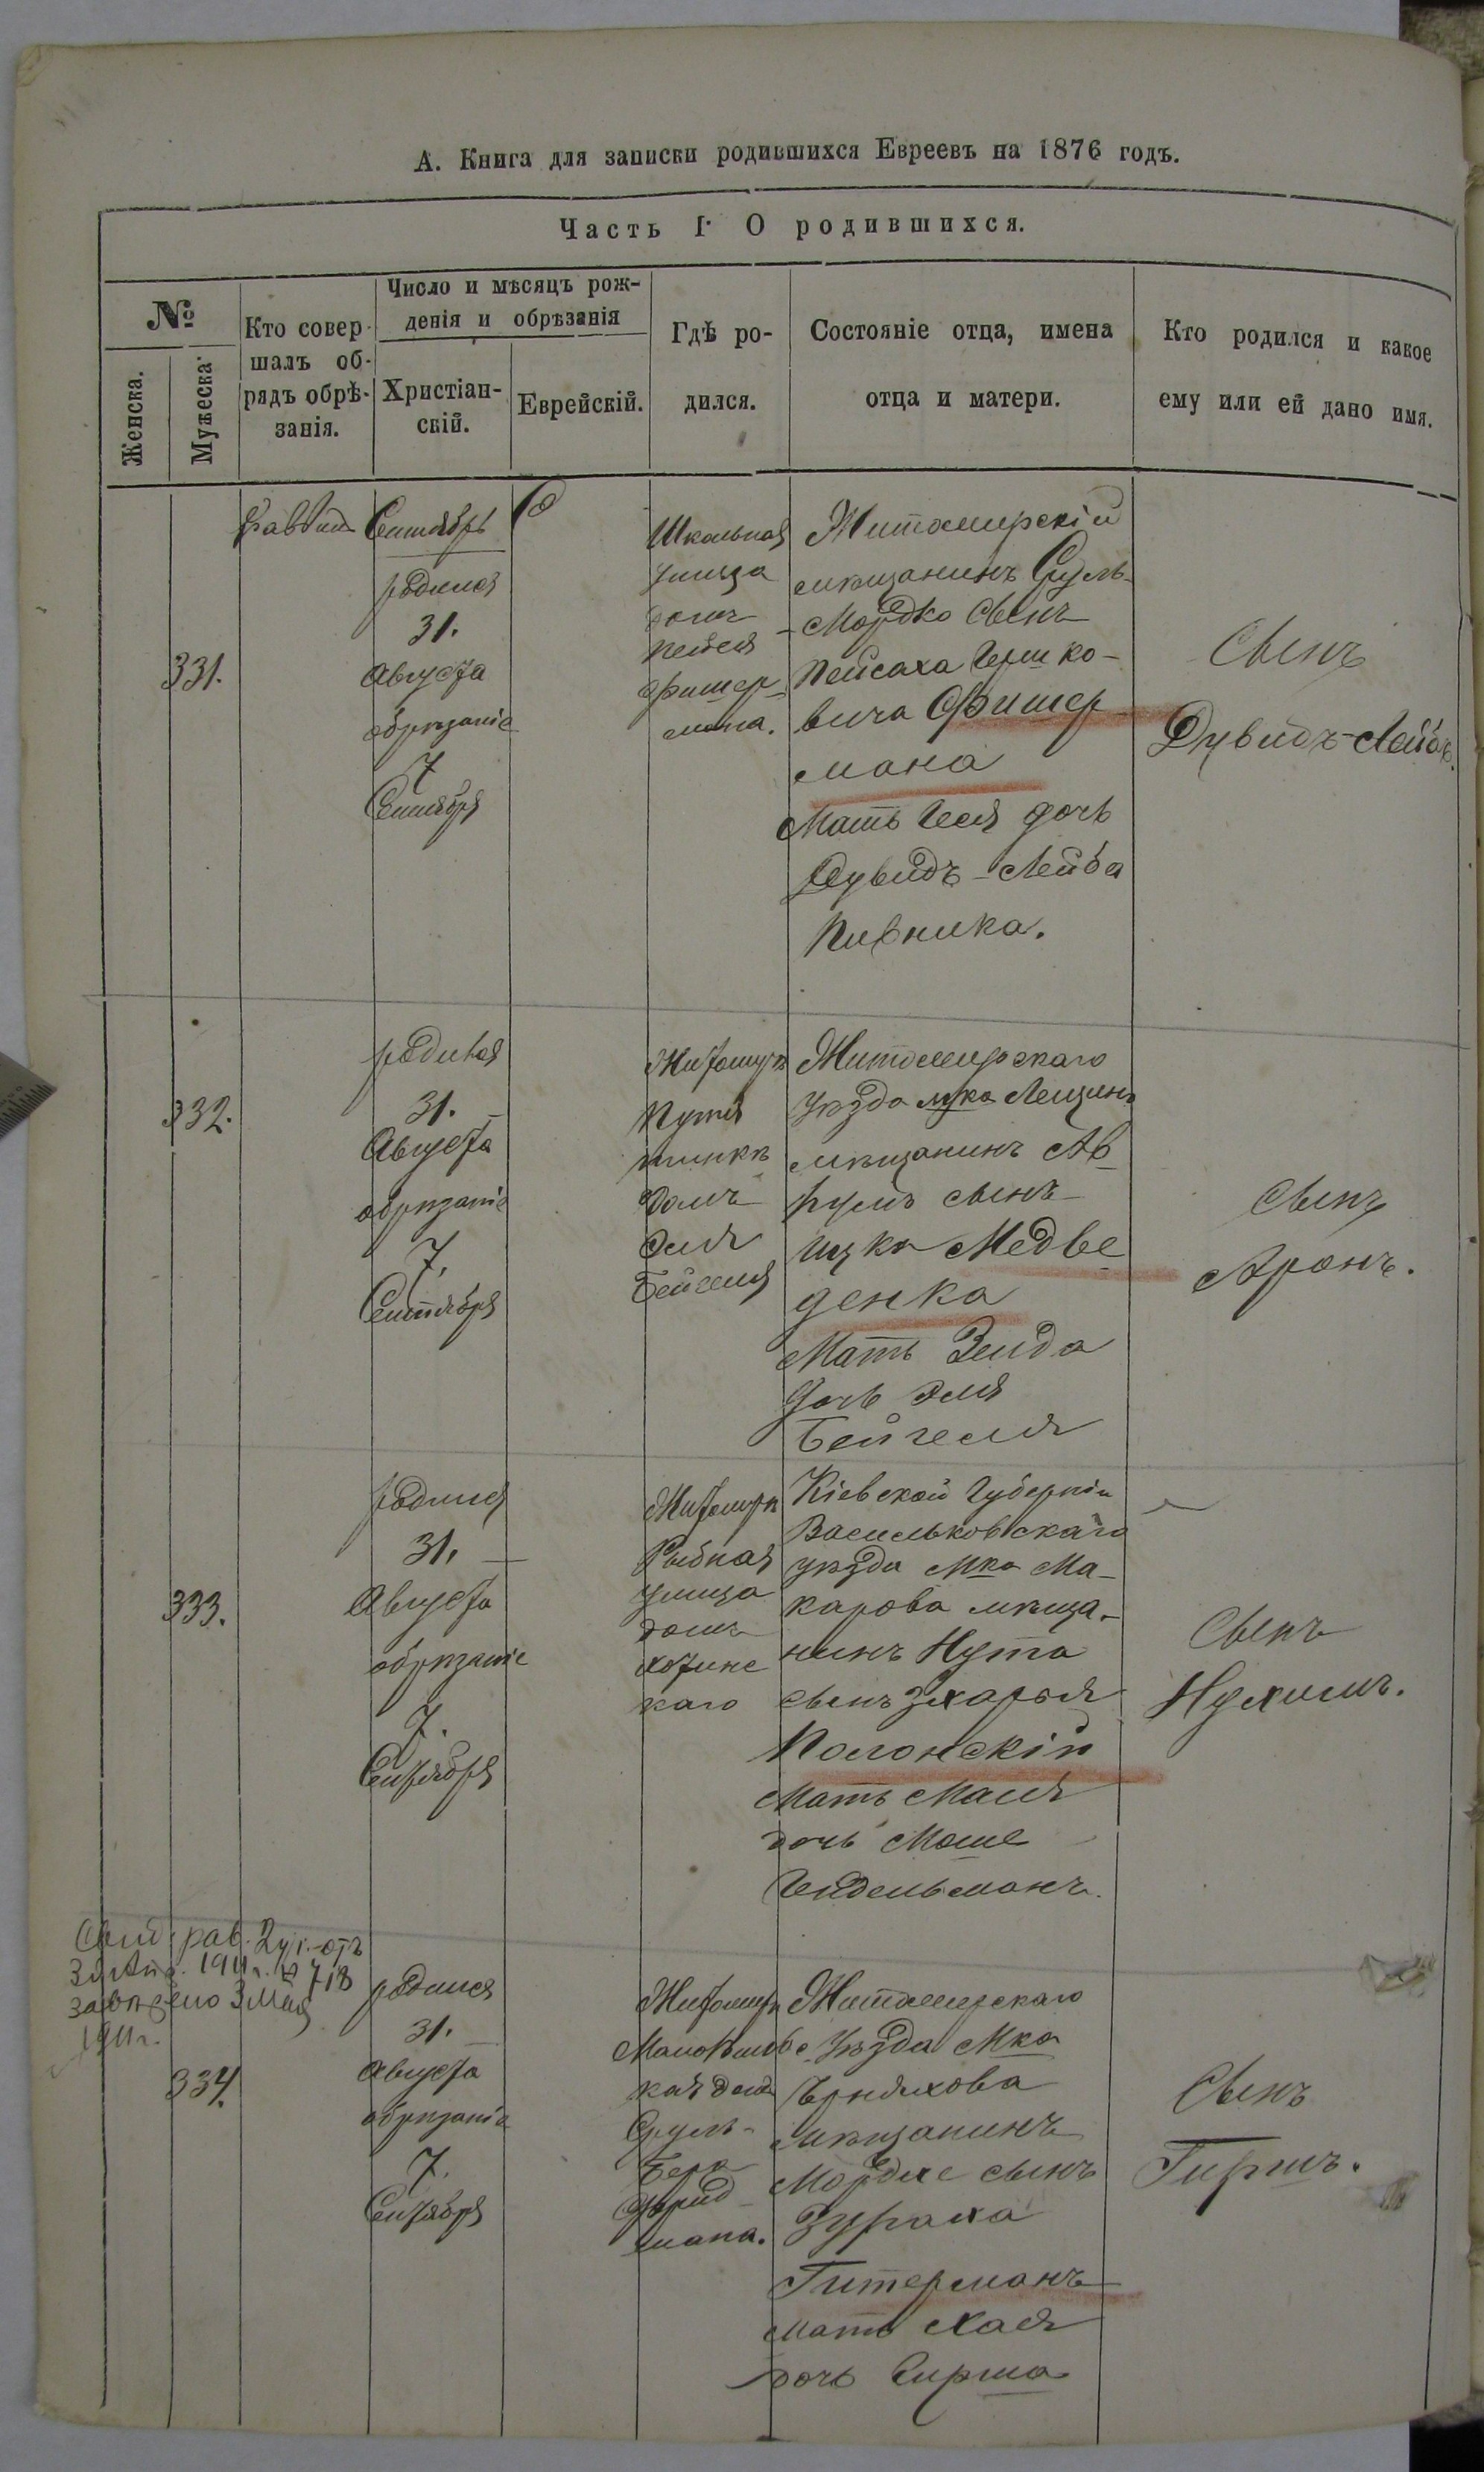 А. Книга для записки родившихся Евреевъ на 1876 годъ.
Часть I. О родившихся.
№
Женска.
Мужеска.
Кто совер-
шалъ об-
рядъ обрѣ-
занія.
Число и мѣсяцъ рож-
денія и обрѣзанія
Христіан-
скій.
Еврейскій.
Гдѣ ро-
дился.
Состояніе отца, имена
отца и матери.
Кто родился и какое
ему или ей дано имя.
331.
Раввинъ
Сентябрь
родился
31.
Августа
обрѣзаніе
7
Сентября
Школьная
улица
домъ
Пейсах
Фишер-
мана.
Житомирскій
мѣщанинъ Сруль-
Мордко сынъ
Пейсаха Герш ко-
вича Фишер
мана
Мать Геся дочь
Дувидъ-Лейба
Пивника.
Сынъ
Дувидъ-Лейбъ.
332.
родился
31.
Августа
обрѣзаніе
7.
Сентября
Житомиръ
домъ
Эля
Бейгеля
Житомирскаго
уѣзда мка Лещинъ
мѣщанинъ Ав
румъ сынъ
Ицка Медве
денка
Мать Зельда
дочь Эля
Бейгеля
Сынъ
Аронъ.
333.
родился
31.
Августа
обрѣзаніе
7.
Сентября
Житомиръ
Рыбная
улица
домъ
Хотинс
каго
Кіевской Губерніи
Васильковскаго
уѣзда Мка Ма-
карова мѣща-
нинъ Нута
сынъ Зхарья
Полонскій
Мать Маля
дочь Моше
Гендельманъ.
Сынъ
Нухимъ.
334.
1911 г. № 718
3 Мая
1911 г.
родился
31.
Августа
обрѣзаніе
7.
Сентября
Житомиръ
кая домъ
Сруль-
Берк
Фрид
мана.
Житомирскаго
Уѣзда Мка
Черняхова
мѣщанинъ
Мордхе сынъ
Зураха
Гитерманъ
мать Хая
дочь Гирша
Сынъ
Гиршъ.